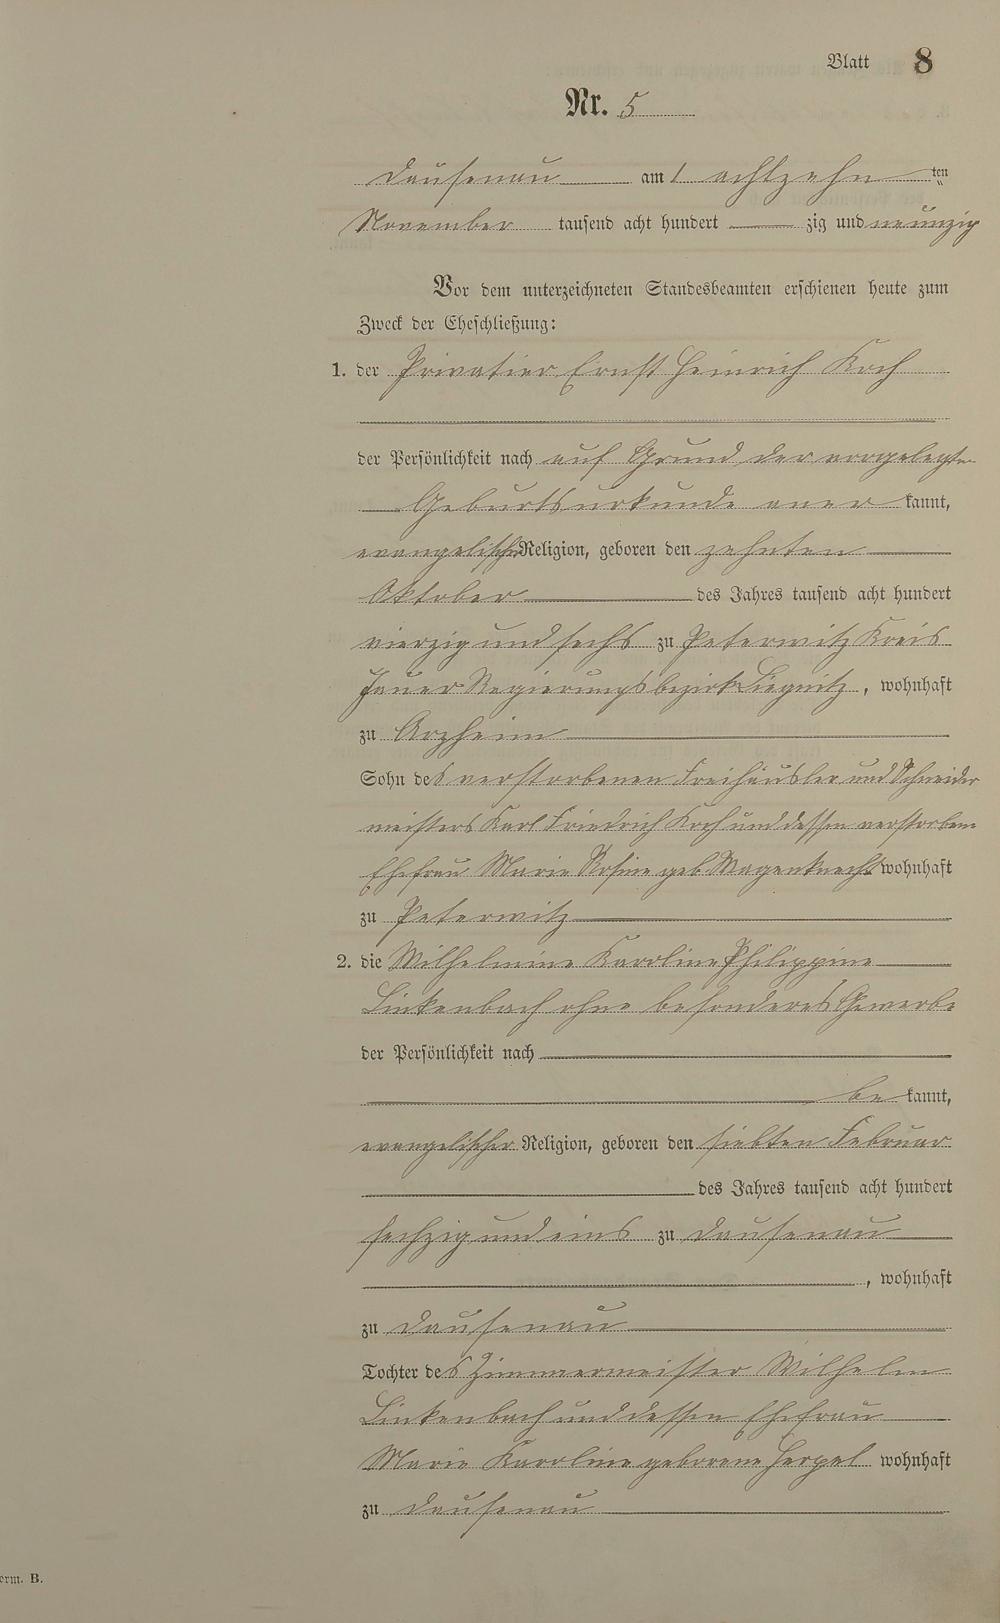 Blatt 8
Nr. 5
Dausenau am achtzehn ten
November tausend acht hundert zig und neunzig
Vor dem unterzeichneten Standesbeamten erschienen heute zum
Zweck der Eheschließung:
1. der Privatier Ernst Heinrich Koch
der Persönlichkeit nach auf Grund der vorgelegten
Geburtsurkunde aner kannt,
evangelischer Religion, geboren den zehnten
Oktober des Jahres tausend acht hundert
vierzig und sechs zu Peterwitz Kreis
Jauer Regierungsbezirk Liegnitz, wohnhaft
zu Arzheim
Sohn des verstorbenen Freihäusler und Schneider
meisters Karl Friedrich Koch und dessen verstorbene
Ehefrau Marie Rosine geb Wagenknecht wohnhaft
zu Peterwitz
2. die Wilhelmine Karoline Philippine
Linkenbach ohne besonderes Gewerbe
der Persönlichkeit nach
be kannt,
evangelischer Religion, geboren den siebten Februar
des Jahres tausend acht hundert
sechzig und eins zu Dausenau
, wohnhaft
zu Dausenau
Tochter des Zimmermeister Wilhelm
Linkenbach und dessen Ehefrau
Marie Karoline geborene Herpel wohnhaft
zu Dausenau
orm. B.